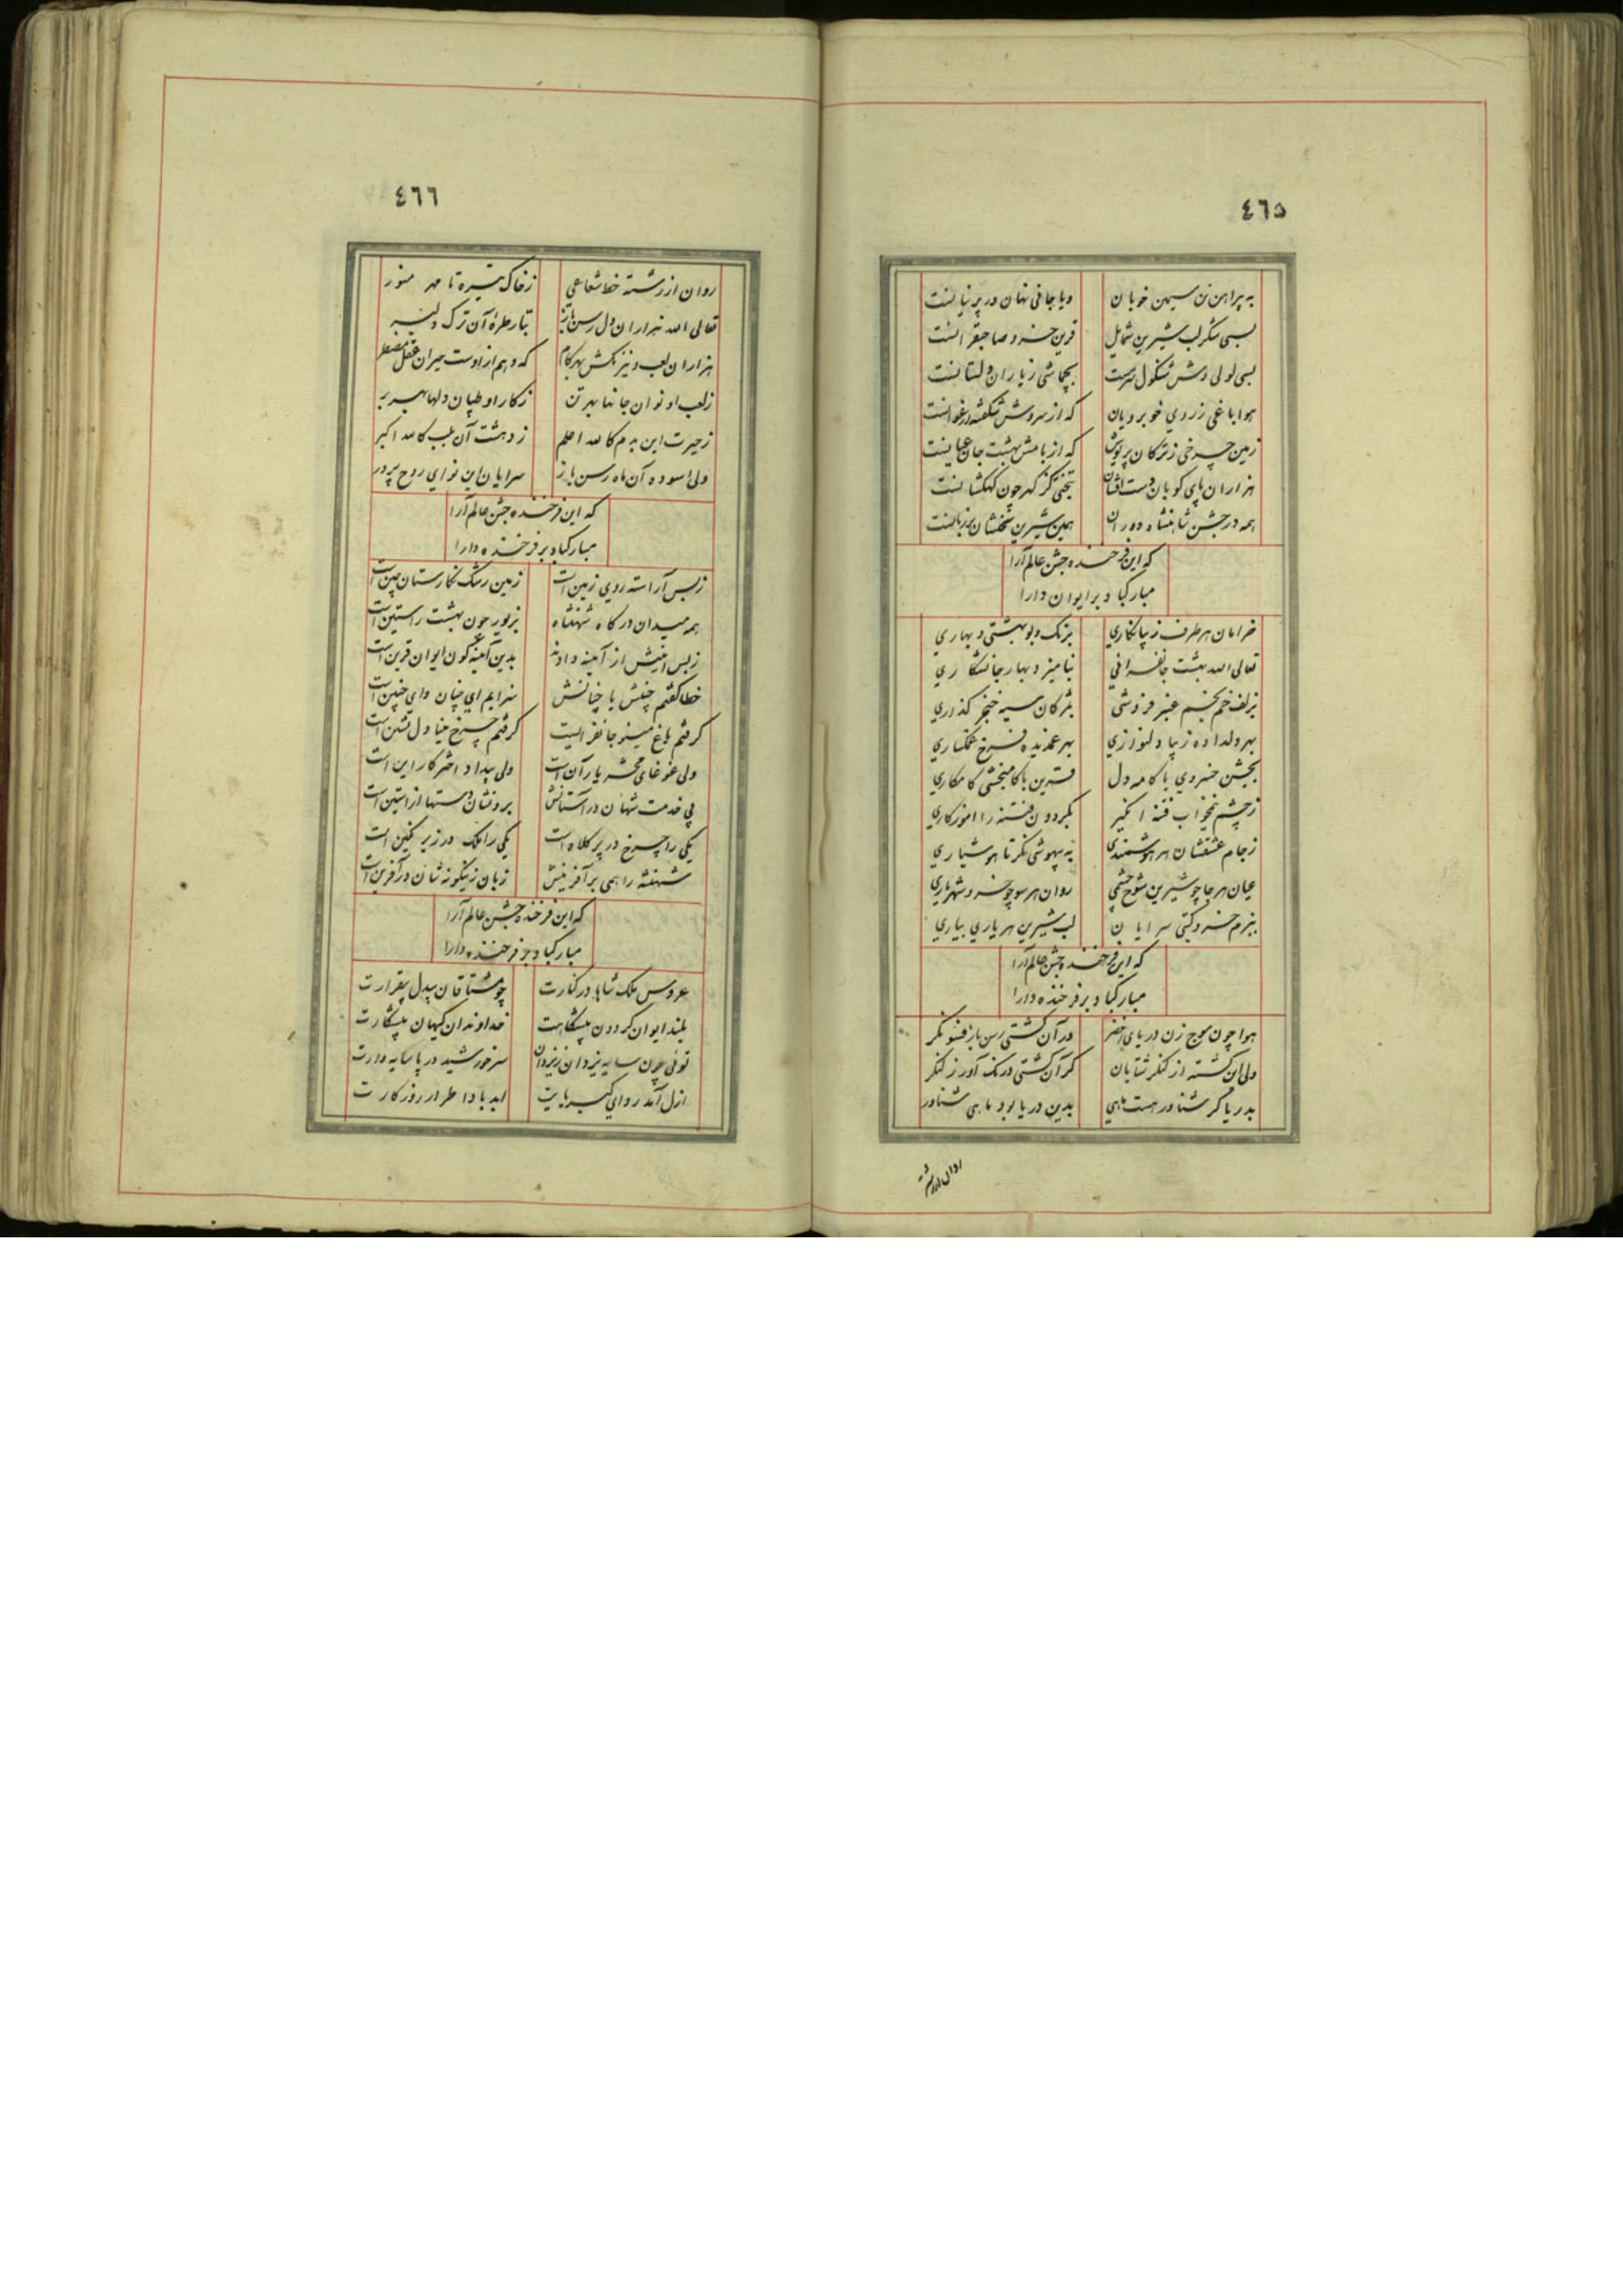 ٤٦٥
به پیراهن تن سیمین خوبان
ویا جانی نهان در پرنیانست
بسی شکر لب شیرین شمایل
قرین خسرو صاحبقرانست
بسی لولی وش شنکول سرمست
هوا باغی ز روی خوبرویان
که از سروش شکفته ارغوانست
زمین چرخی ز ترکان پریوش
که از بامش بهشت جان عیانست
هزاران پای کوبان دست افشان
همه در جشن شاهنشاه دوران
همین شیرین سخنشان بر زبانست
که این فرخنده جشن عالم آرا
مبارکباد بر ایوان دارا
خرامان هر طرف زیبا نکاری
برنک و بوبهشتی و بهاری
تعالی الله بهشت جانفزائی
بزلف خم بخم عنبر فروشی
بمژکان سینه خنجر کذاری
بهر دلداده زیبا دلنوازی
بهر غمدیده فرخ غمکساری
بجشن خسروی با کامه دل
قرین با کامبخشی کامکاری
ز چشم نیمخواب فتنه انکیز
بکردون فتنه را اموزکاری
ز جام عشقشان هر هوشمندی
به بیهوشی نکر تا هوشیاری
عیان هر جا چو شیرین شوخ چشمی
روان هر سو چو خسرو شهریاری
ببزم خسرو کیتی سرایان
لب شیرین هر یاری بیاری
که این فرخنده جشن عالم آرا
مبارکباد بر فرخنده دارا
هوا چون موج زن دریای اخضر
در آن کشتی رسن باز فسونکر
ولی این کشته از لنکر شتابان
کر آن کشتی درنک آورد ز لنکر
بدریا کر شناور هست ماهی
بدین دریا بود ماهی شناور
روان از رشته
٤٦٦
روان از رشته خط شعاعی
ز خاک تیره تا مهر منور
تعالی الله هزاران دل رسن باز
بتار طره آن ترک دلبر
هزاران لعب دنیزنکش بهر کام
که وهم از اوست حیران عقل مضطر
ز لعب او نوان جانها بهر تن
ز کار او طپان دلها ببر بر
ز حیرت این بدم کالله اعلم
ز دهشت آن بلب کالله اکبر
ولی اسوده آن ماه رسن باز
سرایان این نوای روح پرور
که این فرخنده جشن عالم آرا
مبارکباد بر فرخنده دارا
ز بس آراسته روی زمین است
زمین رشک نکارستان چین است
همه میدان درکاه شهنشاه
بزیور چون بهشت راستین است
ز بس ائینش از آئینه دادند
بدین آئینه کون ایوان قرین است
خطا کفتم چنینش یا چنانش
سرایم ای چنان وای چنین است
کرفتم باغ مینو جانفزائیست
کرفتم چرخ مینا دلنشین است
ولی غوغای محشر یار آن است
ولی بیداد اختر کار این است
پی خدمت شهان در آستانش
برون شان دستها از استین است
یکی را چرخ در پر کلاه است
یکی را ملک در زیر نکین است
شهنشه را همی بر آفرینش
زبان زینکونه شان در آفرین است
که این فرخنده جشن عالم آرا
مبارکباد بر فرخنده دارا
عروس ملک شاها در کنارت
چو مشتاقان بیدل بیقرارت
بلند ایوان کردون پیشکاهت
خداوندان کیهان پیشکارت
توئی چون سایه یزدان ز یزدان
سر خورشید در پا سایه وارت
ازل آمد ردای کبریایت
ابد بادا طراز روزکارت